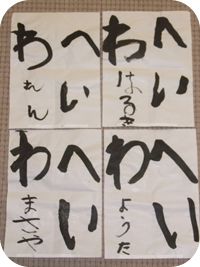 へい
わ
はるき
へい
わ
れん
へい
わ
ようた
へい
わ
まさや